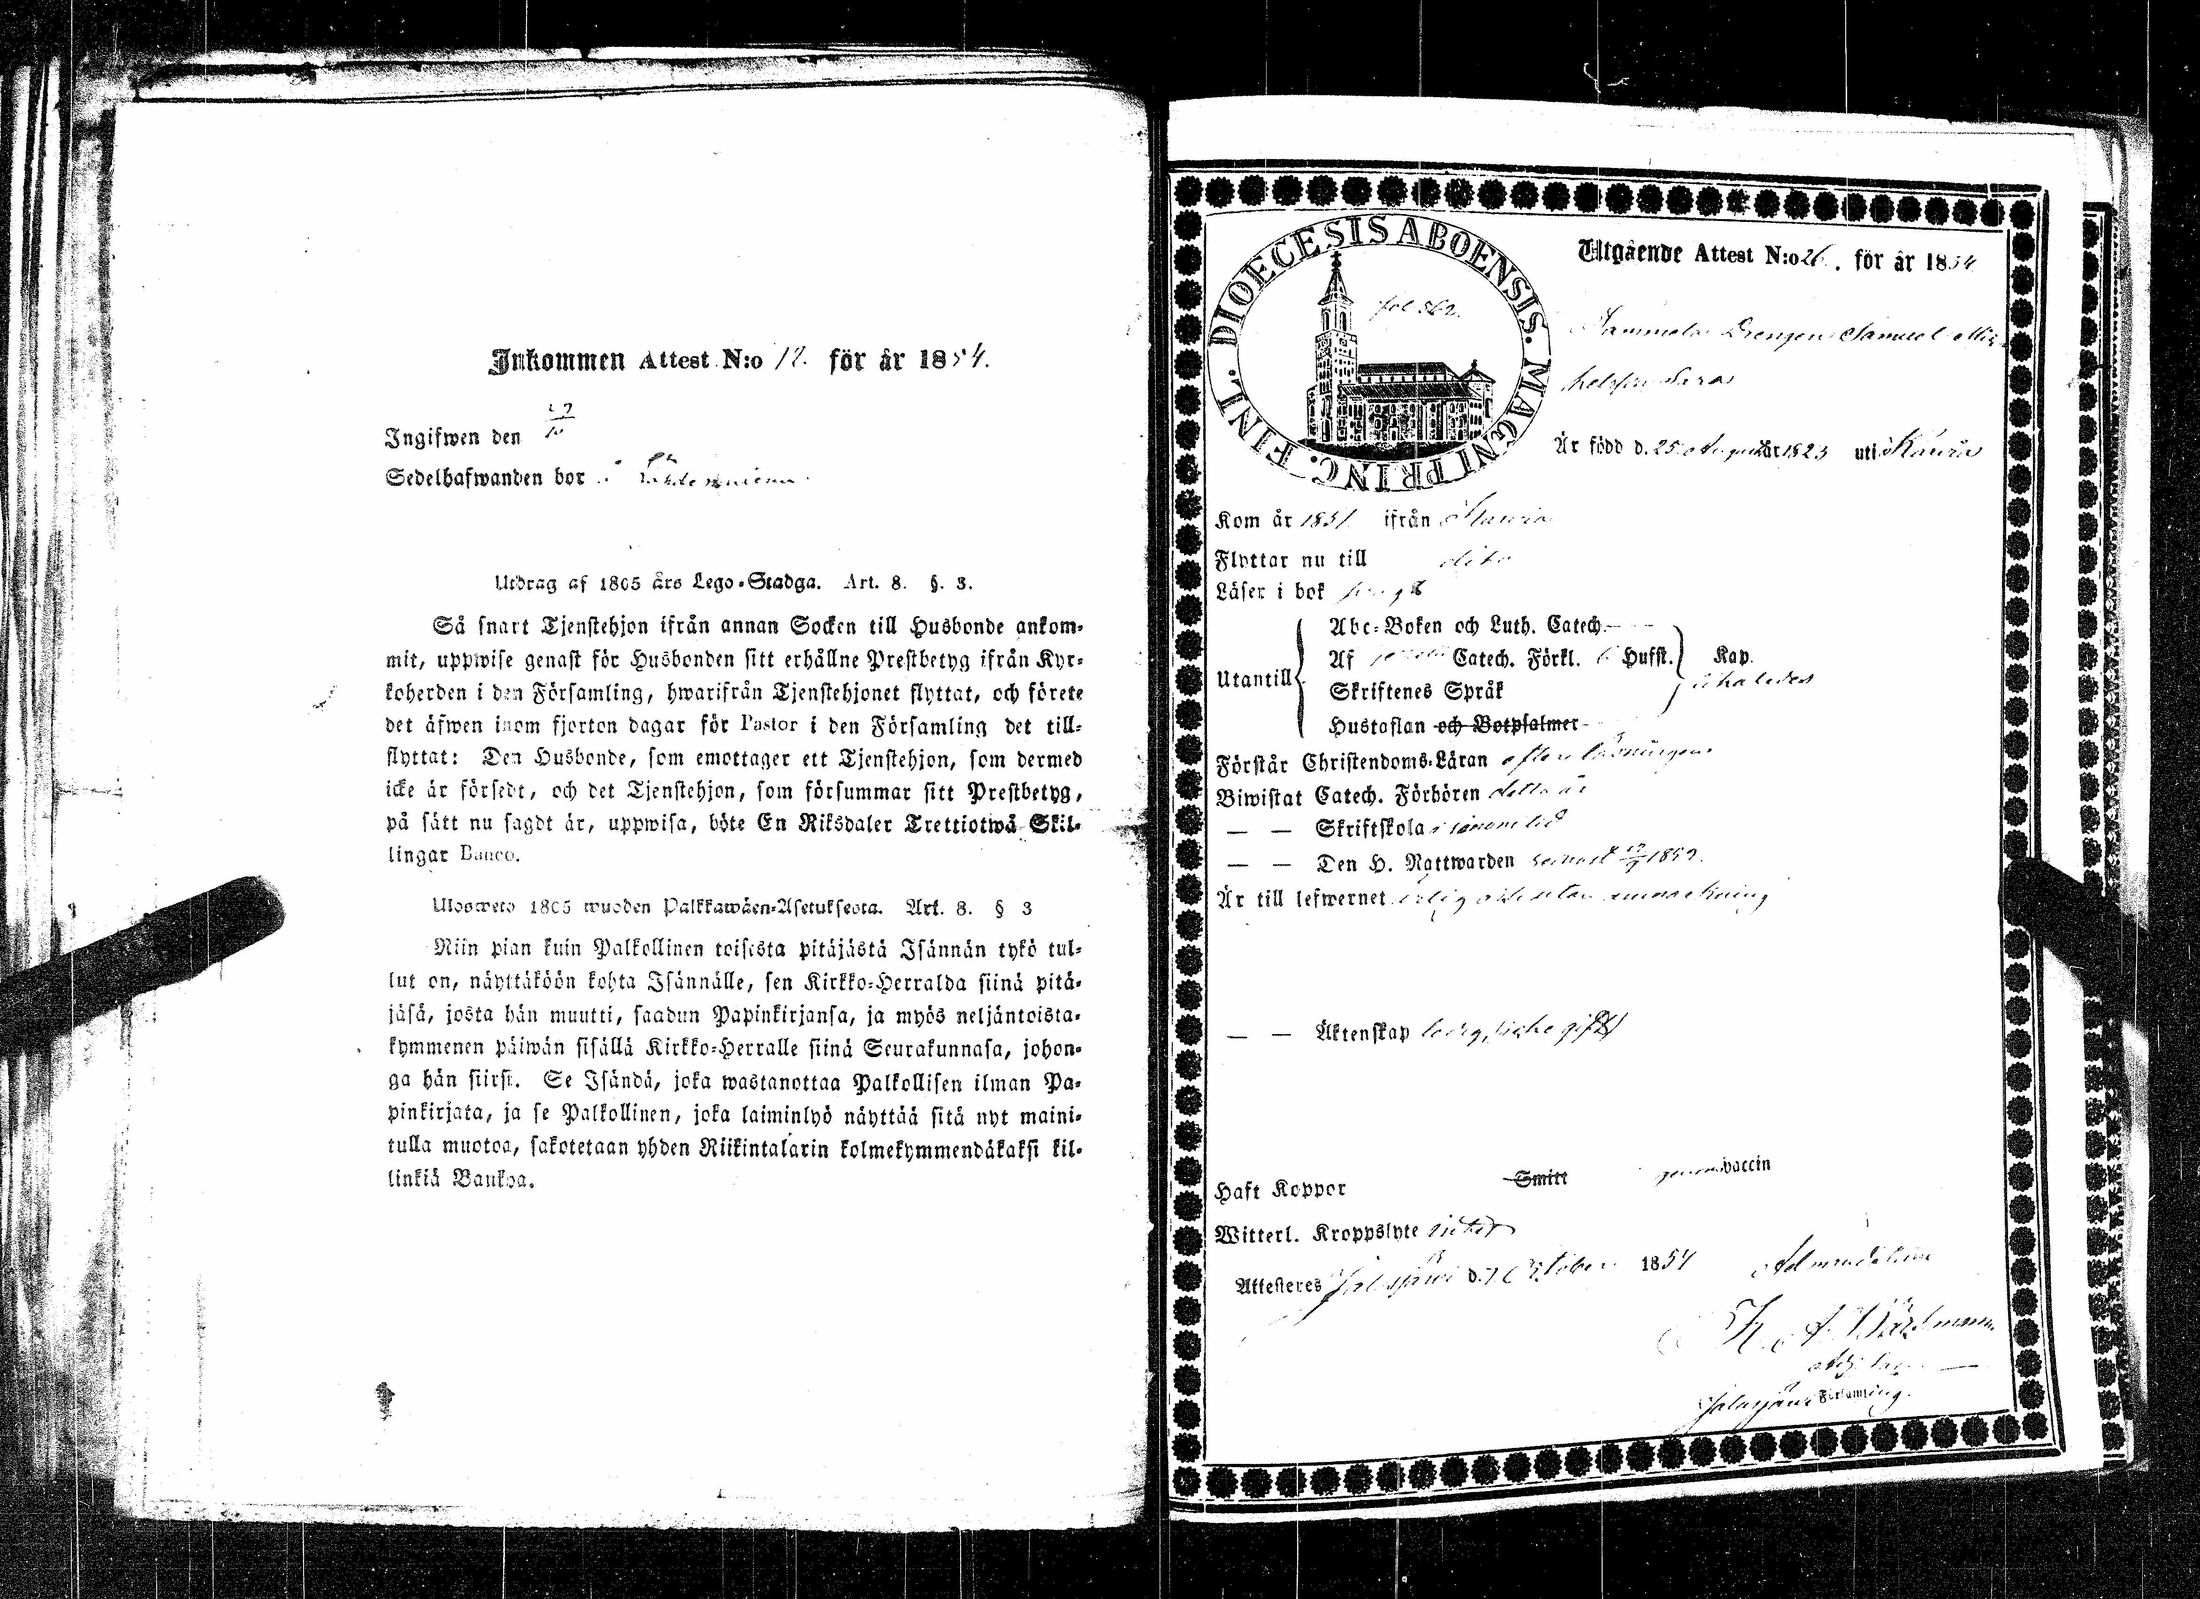 Inkommen Attest N:o 12. för år 1854.
Ingifwen den 27/10
Sedelhafwanden bor i
Utdrag af 1805 års Lego-Stadga. Art. 8. §. 3.
Så snart Tjenstehjon ifrån annan Socken till Husbonde ankom-
mit, uppwise genast för Husbonden sitt erhållne Prestbetyg ifrån Kyr-
koherden i den Församling, hwarifrån Tjenstehjonet flyttat, och förete
det äfwen inom fjorton dagar för Pastor i den Församling det till-
flyttat: Den Husbonde, som emottager ett Tjenstehjon, som dermed
icke är försedt, och det Tjenstehjon, som försummar sitt Prestbetyg,
på sätt nu sagdt är, uppwisa, böte En Riksdaler Trettiotwå Skil-
lingar Banco.
Ulosweto 1805 wuoden Palkkawäen-Asetuksesta. Art. 8. § 3
Niin pian kuin Palkollinen toisesta pitäjästä Isännän tykö tul-
lut on, näyttäköön kohta Isännälle, sen Kirkko-Herralda siinä pitä-
jäsä, josta hän muutti, saadun Papinkirjansa, ja myös neljäntoista-
kymmenen päiwän sisällä Kirkko-Herralle siinä Seurakunnasa, johon-
ga hän siirsi. Se Isändä, joka wastanottaa Palkollisen ilman Pa-
pinkirjata, ja se Palkollinen, joka laiminlyö näyttää sitä nyt maini-
tulla muotoa, sakotetaan yhden Riikintalarin kolmekymmendäkaksi kil-
linkiä Bankoa.
DIOECESIS ABOENSIS. MAGNI PRINC. FINL.
fol 562.
Utgående Attest N:o 26. för år 1854
Drengen Samuel Mic-
helsson
Är född d. 25 Augusti år 1823 uti Kauria
Kom år 1851 ifrån Ilmola
Flyttar nu till dito
Läser i bok
Utantill
Abc-Boken och Luth. Catech.
Af Catech. Förkl. Hufst. Kap.
Skriftenes Språk
Hustaflan och Botpsalmer
Förstår Christendoms-Läran efter läsningen
Biwistat Catech. Förhören detta år
— — Skriftskola i samma tid
— — Den H. Nattwarden senast 1852.
Är till lefwernet ärlig och utan anmärkning
— — Äktenskap ledig, icke gift
Haft Koppor Smitt genom vaccin
Witterl. Kroppslyte intet
Attesteres Jalasjärvi d. October 1854
Adj.
Jalasjärvi Församling.